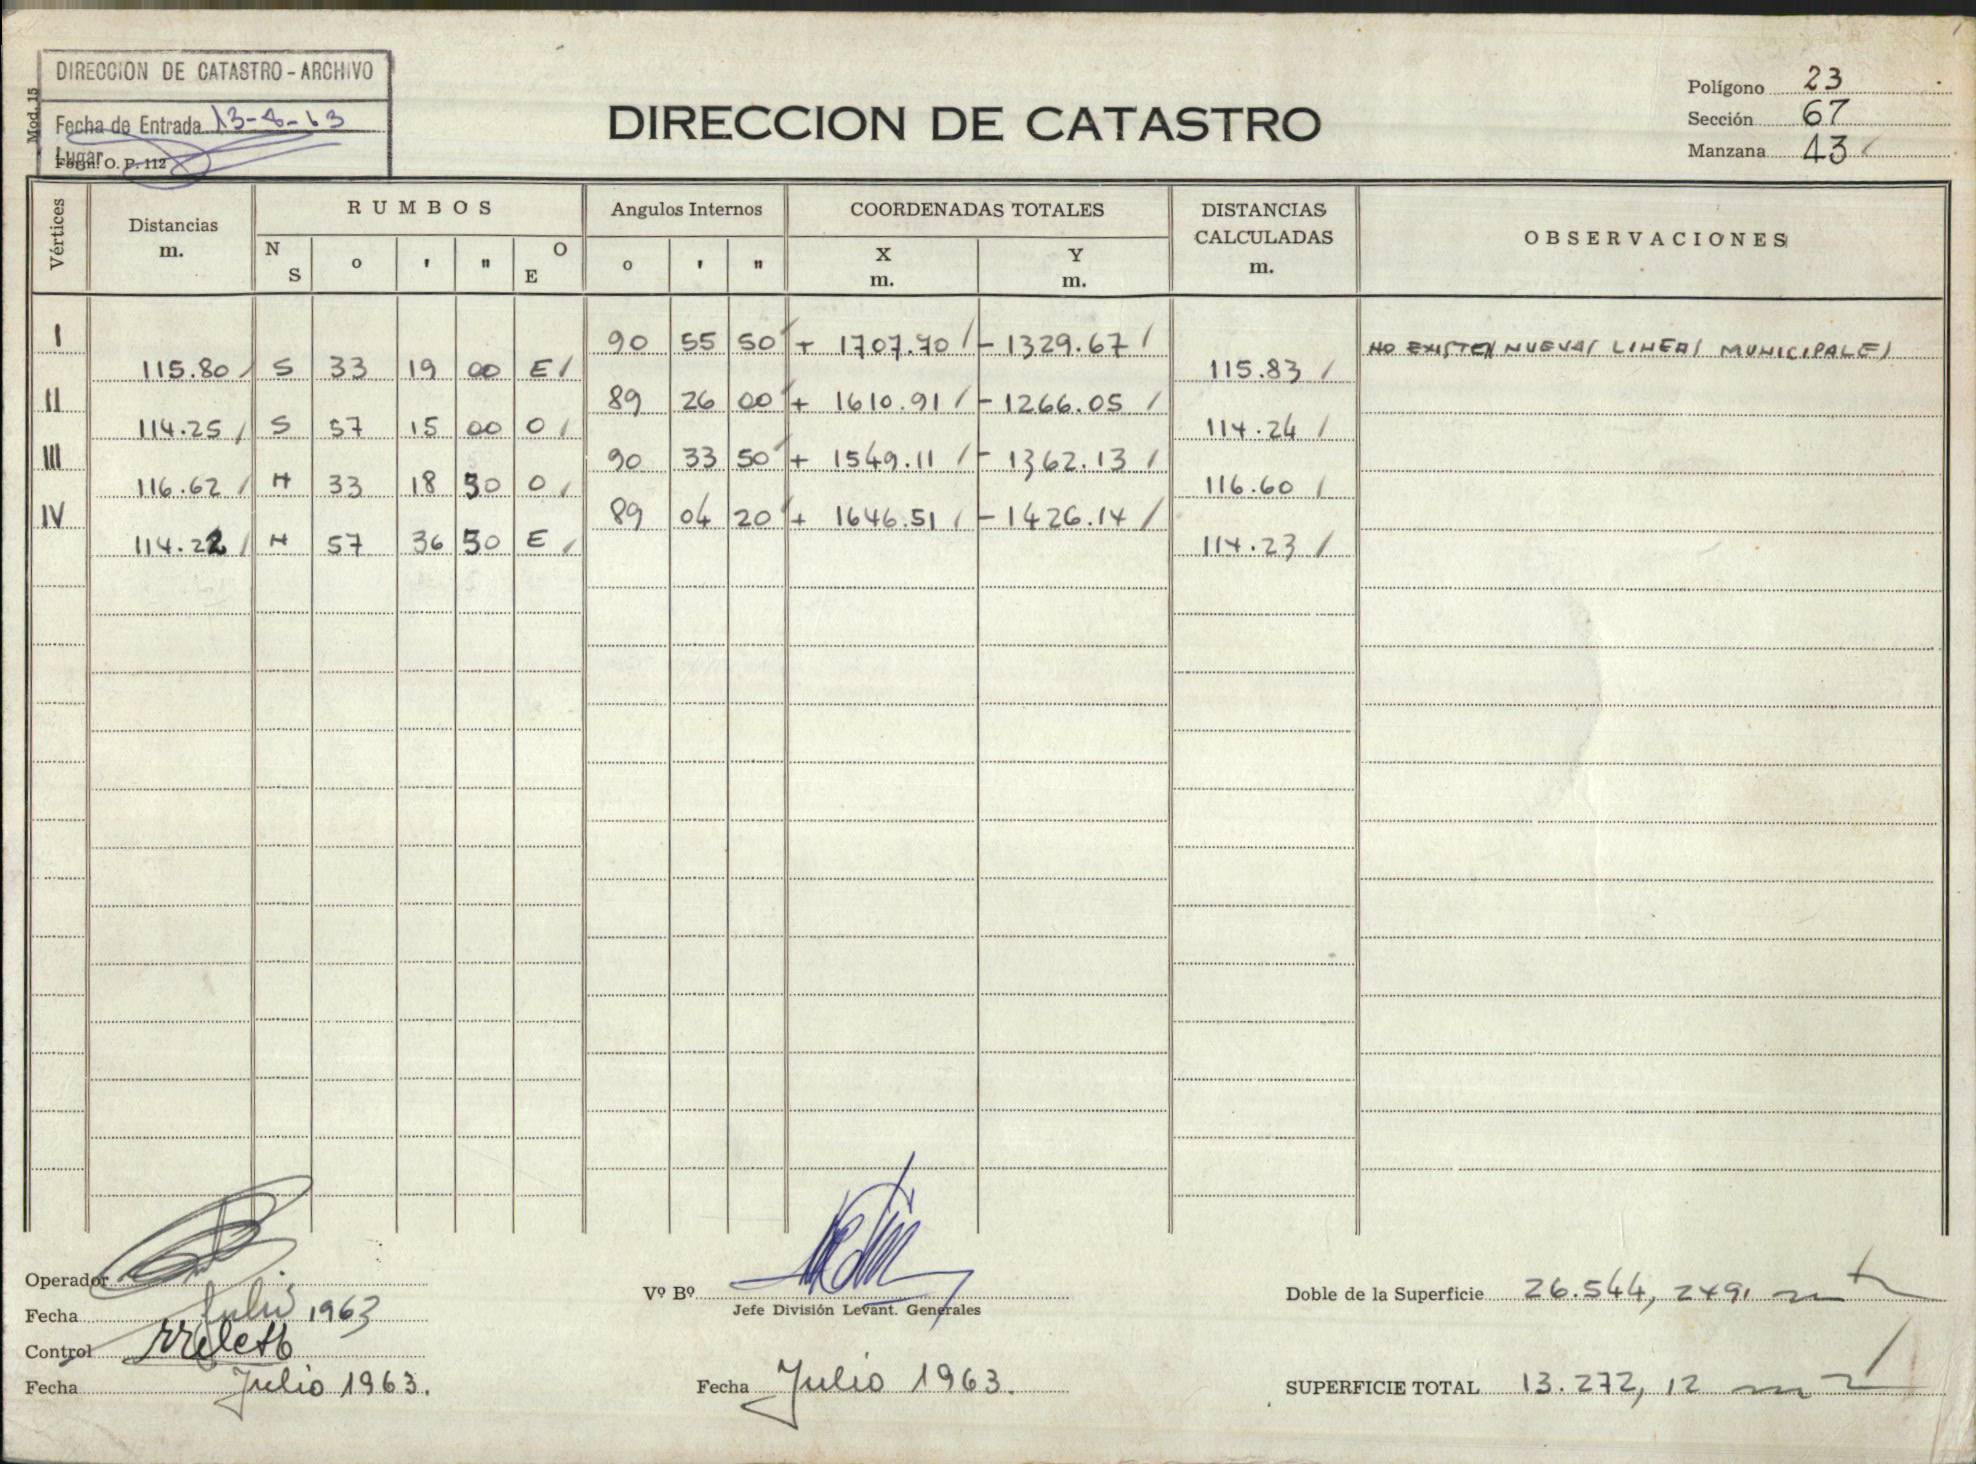 DIRECCION DE CATASTRO - ARCHIVO
Fecha de Entrada 13-8-63
Lugar
Form. O. P. 112
Mod. 15
DIRECCION DE CATASTRO
Polígono 23
Sección 67
Manzana 43
Vértices Distancias m. RUMBOS Angulos Internos COORDENADAS TOTALES DISTANCIAS CALCULADAS m. OBSERVACIONES
N S o ' " O E o ' " X m. Y m.
I 90 55 50 + 1707.70 - 1329.67 NO EXISTEN NUEVAS LINEAS MUNICIPALES
115.80 S 33 19 00 E 115.83
II 89 26 00 + 1610.91 - 1266.05
114.25 S 57 15 00 O 114.24
III 90 33 50 + 1549.11 - 1362.13
116.62 N 33 18 50 O 116.60
IV 89 04 20 + 1646.51 - 1426.14
114.22 N 57 36 50 E 114.23
Operador
Fecha Julio 1963
Control
Fecha Julio 1963.
Vº Bº
Jefe División Levant. Generales
Fecha Julio 1963.
Doble de la Superficie 26.544, 2491 m2
SUPERFICIE TOTAL 13.272, 12 m2